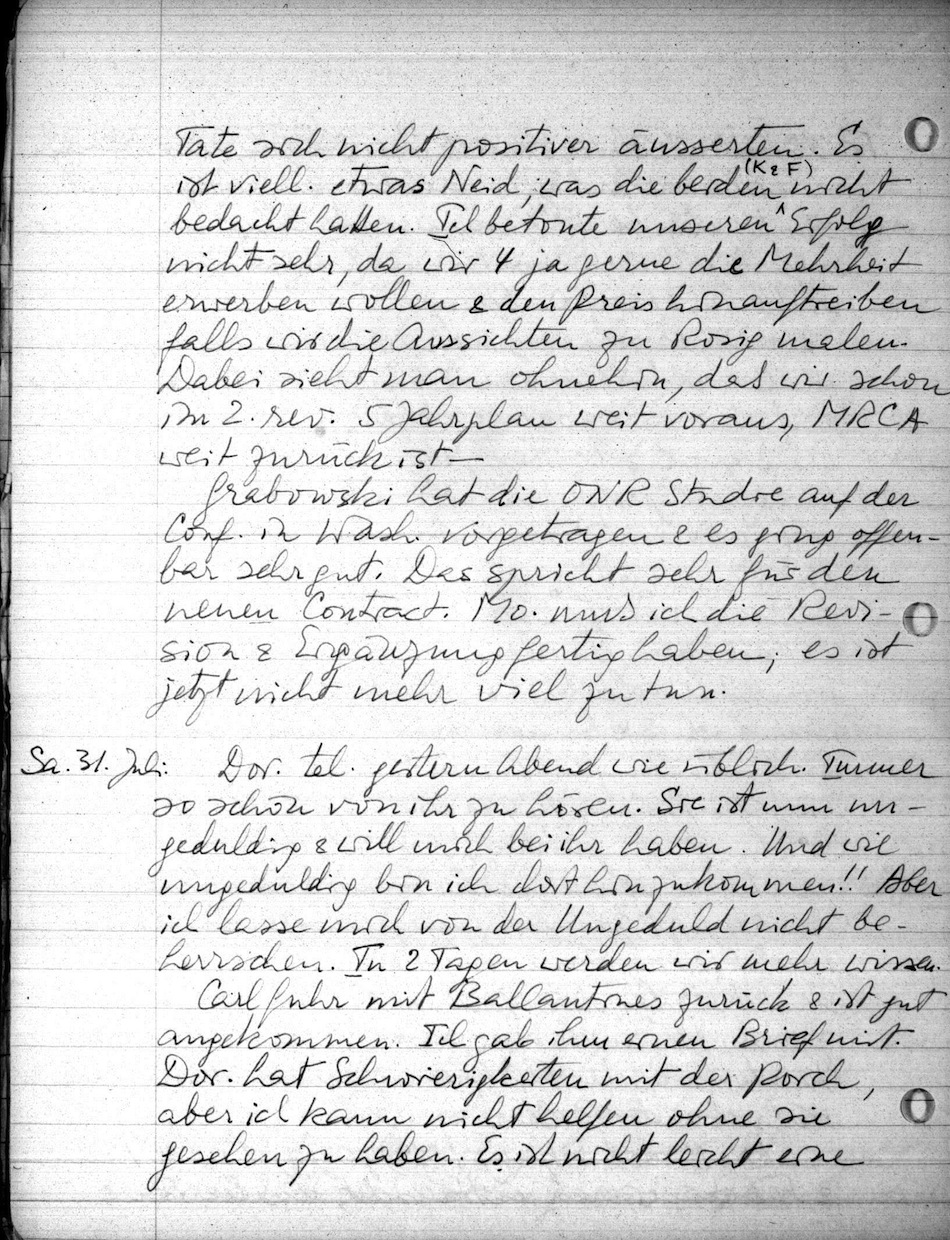 Tate sich nicht positiver äusserten. Es
ist viell. etwas Neid, was die beiden (K & F) nicht
bedacht hatten. Ich betonte unseren Erfolg
nicht sehr, da wir 4 ja gerne die Mehrheit
erwerben wollen & den Preis hinauftreiben
falls wir die Aussichten zu Rosig malen.
Dabei sieht man ohnehin, daß wir schon
im 2. rev. 5 Jahrplan weit voraus, MRCA
weit zurück ist—
Grabowski hat die ONR Studie auf der
Conf. in Wash. vorgetragen & es ging offen-
bar sehr gut. Das spricht sehr für den
neuen Contract. Mo. muß ich die Revi-
sion & Ergänzung fertig haben; es ist
jetzt nicht mehr viel zu tun.
Sa. 31. Juli: Dor. tel. gestern Abend wie üblich. Immer
so schön von ihr zu hören. Sie ist nun un-
geduldig & will mich bei ihr haben. Und wie
ungeduldig bin ich dort hinzukommen!! Aber
ich lasse mich von der Ungeduld nicht be-
herrschen. In 2 Tagen werden wir mehr wissen.
Carl fuhr mit Ballantines zurück & ist gut
angekommen. Ich gab ihm einen Brief mit.
Dor. hat Schwierigkeiten mit der Porch,
aber ich kann nicht helfen ohne sie
gesehen zu haben. Es ist nicht leicht eine